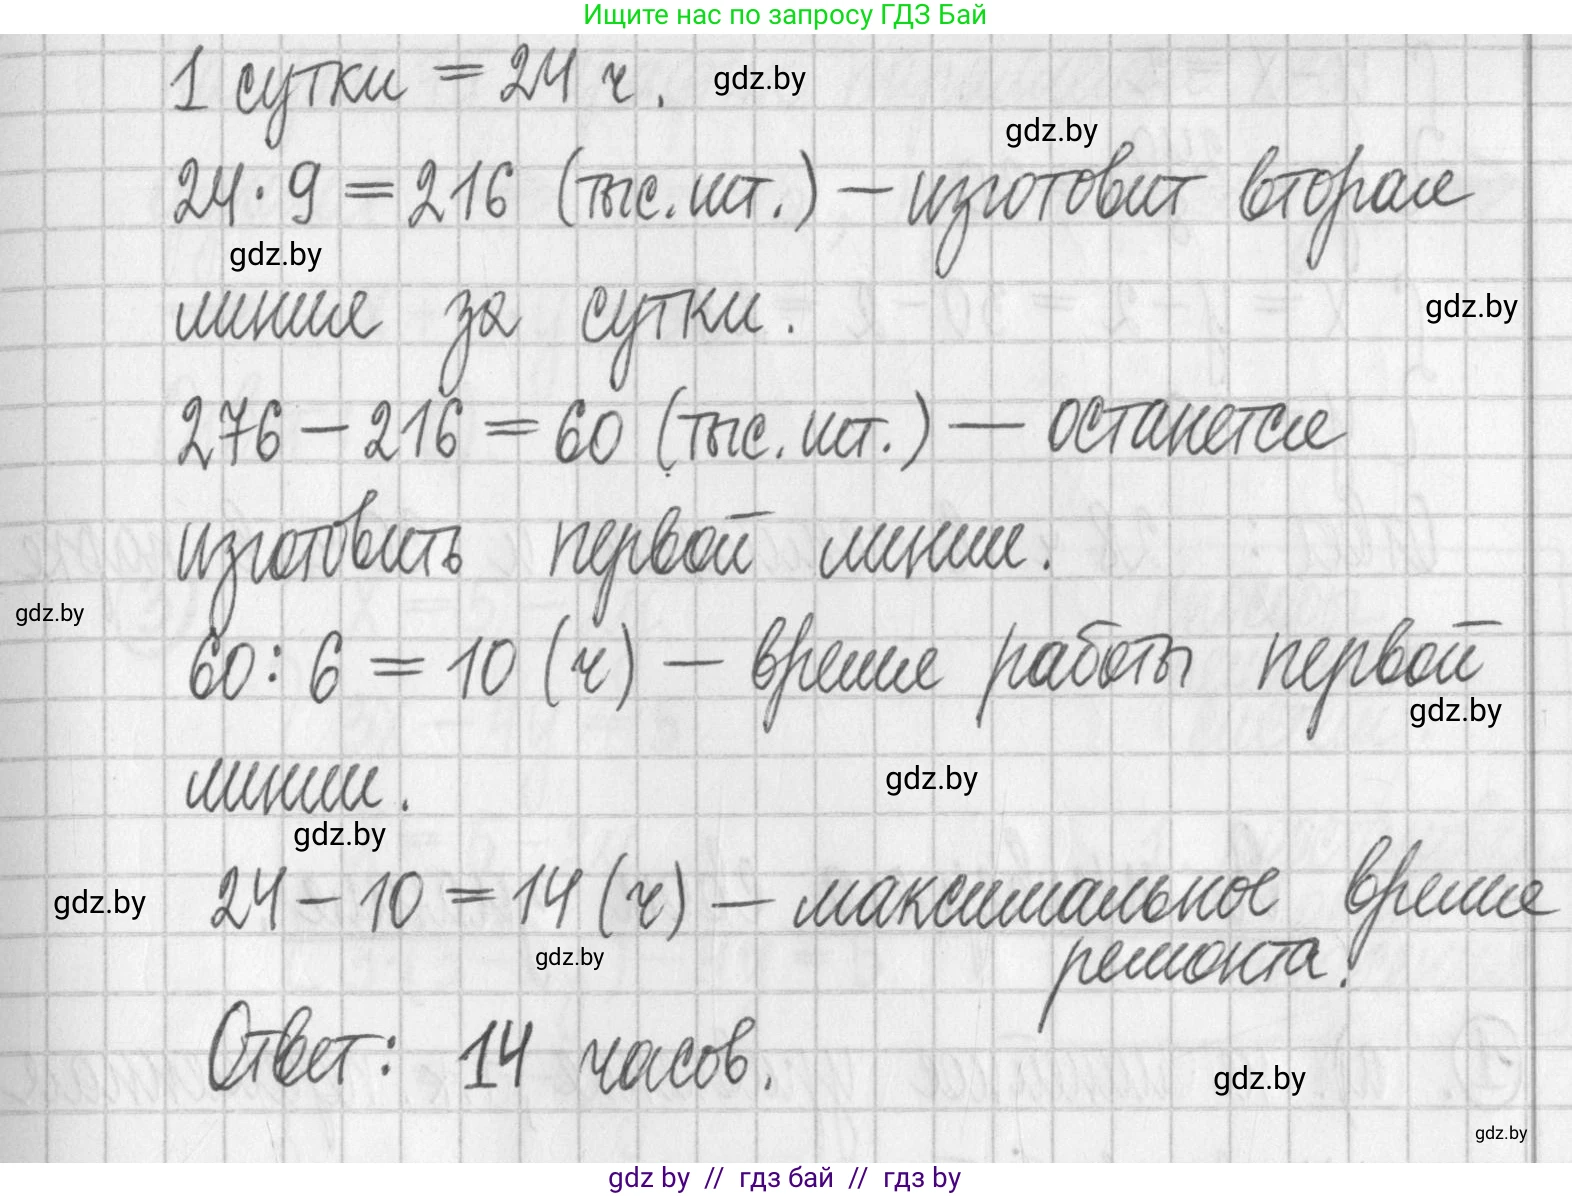 Ищите нас по запросу ГДЗ Бай
1 сутки = 24 ч. gdz.by
gdz.by
24 · 9 = 216 (тыс. шт.) — изготовит вторая
gdz.by
линия за сутки.
gdz.by
276 — 216 = 60 (тыс. шт.) — останется
изготовить первой линии.
gdz.by
60 : 6 = 10 (ч) — время работы первой
gdz.by
линии.
gdz.by
gdz.by
24 — 10 = 14 (ч) — максимальное время
gdz.by
ремонта.
gdz.by
Ответ: 14 часов.
gdz.by
gdz.by
gdz by // гдз бай // гдз by